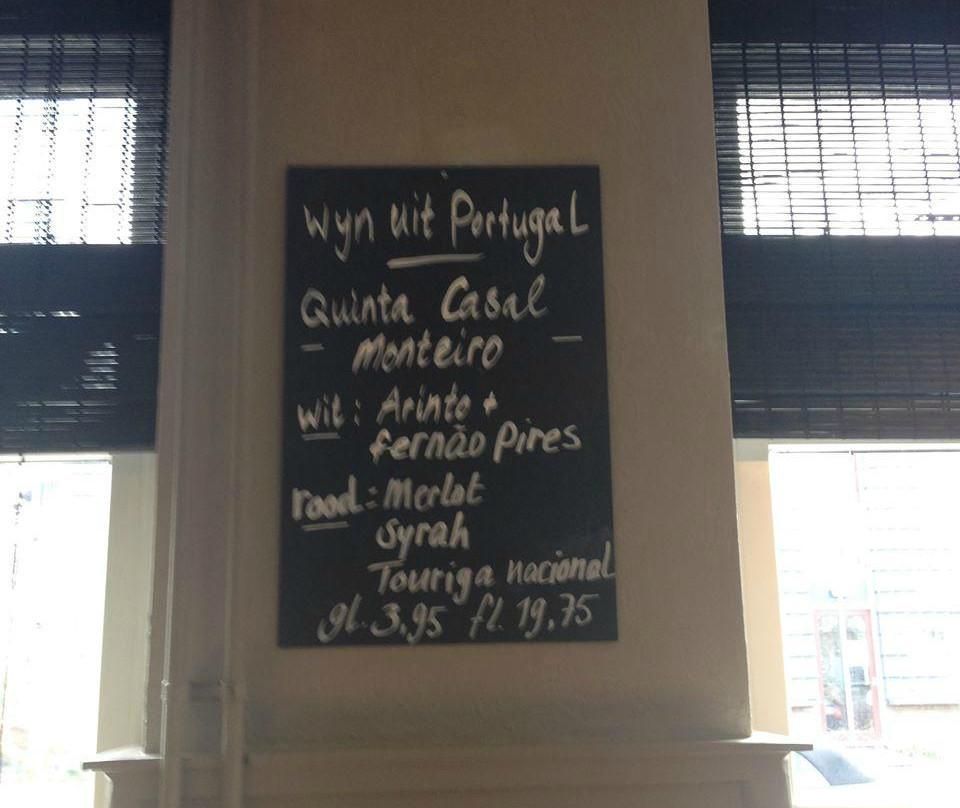 wyn uit Portugal
Quinta Casal
- Monteiro -
wit: Arinto +
fernão Pires
rood: Merlot
Syrah
Touriga nacional
gl. 3,95 fl. 19,75